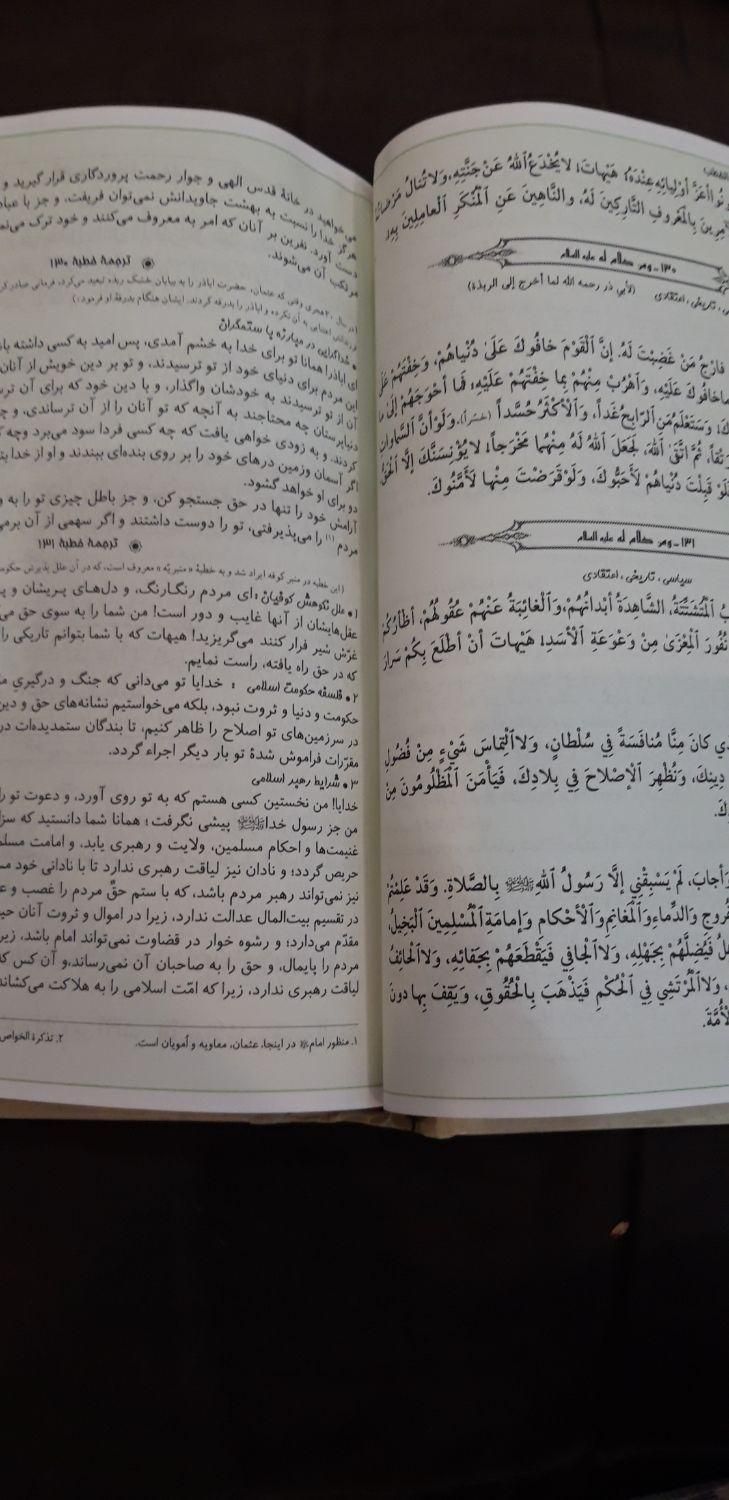 أَوْلِيائِهِ عِنْدَهُ؟ هَيْهاتَ! لايُخْدَعُ اللهُ عَنْ جَنَّتِهِ، وَلا تُنالُ مَرْضاتُهُ
بِالْمَعْرُوفِ التَّارِكِينَ لَهُ، وَالنَّاهِينَ عَنِ الْمُنْكَرِ الْعامِلِينَ بِهِ!
۱۳۰ـ ومن كلام له عليه السلام
(لأبي ذر رحمه الله لما أخرج إلى الربذة)
تاریخی ، اعتقادی
فَارْجُ مَنْ غَضِبْتَ لَهُ. إِنَّ الْقَوْمَ خافُوكَ عَلَىٰ دُنْياهُمْ، وَخِفْتَهُمْ عَلَىٰ
ماخافُوكَ عَلَيْهِ، وَاهْرُبْ مِنْهُمْ بِمَا خِفْتَهُمْ عَلَيْهِ؛ فَمَا أَحْوَجَهُمْ إِلَىٰ ما
وَسَتَعْلَمُ مَنِ الرَّابِحُ غَداً، وَالْأَكْثَرُ حُسَّداً (خسّراً). وَلَوْ أَنَّ السَّماواتِ
ثُمَّ اتَّقَى اللهَ، لَجَعَلَ اللهُ لَهُ مِنْهُما مَخْرَجاً! لا يُؤْنِسَنَّكَ إِلَّا الْحَقُّ
قَبِلْتَ دُنْياهُمْ لَأَحَبُّوكَ، وَلَوْ قَرَضْتَ مِنْها لَأَمَّنُوكَ.
۱۳۱ـ ومن كلام له عليه السلام
سیاسی ، تاریخی ، اعتقادی
الْمُتَشَتِّتَةُ، الشّاهِدَةُ أَبْدانُهُمْ، وَالْغائِبَةُ عَنْهُمْ عُقُولُهُمْ، أَظْأَرُكُمْ
نُفُورَ الْمِعْزَىٰ مِنْ وَعْوَعَةِ الْأَسَدِ! هَيْهاتَ أَنْ أَطْلَعَ بِكُمْ سَرارَ
كانَ مِنَّا مُنافَسَةً فِي سُلْطانٍ، وَلاَ الْتِماسَ شَيْءٍ مِنْ فُضُولِ
دِينِكَ، وَنُظْهِرَ الْإِصْلاحَ فِي بِلادِكَ، فَيَأْمَنَ الْمَظْلُومُونَ مِنْ
وَأَجابَ، لَمْ يَسْبِقْنِي إِلَّا رَسُولُ اللهِ ﷺ بِالصَّلاةِ. وَقَدْ عَلِمْتُمْ
وَالدِّماءِ وَالْمَغانِمِ وَالْأَحْكامِ وَإِمامَةِ الْمُسْلِمِينَ الْبَخِيلُ،
فَيُضِلَّهُمْ بِجَهْلِهِ، وَلاَ الْجافِي فَيَقْطَعَهُمْ بِجَفائِهِ، وَلاَ الْحائِفُ
وَلاَ الْمُرْتَشِي فِي الْحُكْمِ فَيَذْهَبَ بِالْحُقُوقِ، وَيَقِفَ بِها دُونَ
می‌خواهید در خانهٔ قدس الهی و جوار رحمت پروردگاری قرار گیرید و
هرگز خدا را نسبت به بهشت جاویدانش نمی‌توان فریفت، و جز با
دست آورد. نفرین بر آنان که امر به معروف می‌کنند و خود ترک
مرتکب آن می‌شوند.
ترجمهٔ خطبهٔ ۱۳۰
هجری وقتی که عثمان، حضرت اباذر را به بیابان خشک ربذه تبعید می‌کرد، فرمانی صادر
اعتنایی به آن نکرده و اباذر را بدرقه کردند. ایشان هنگام بدرقهٔ او فرمود:)
• خداگرایی در مبارزه با ستمگران
ای اباذر! همانا تو برای خدا به خشم آمدی، پس امید به کسی داشته
این مردم برای دنیای خود از تو ترسیدند، و تو بر دین خویش از آنان
آن از تو ترسیدند به خودشان واگذار، و با دین خود که برای آن
دنیاپرستان چه محتاجند به آنچه که تو آنان را از آن ترساندی، و
کردند. و به زودی خواهی یافت که چه کسی فردا سود می‌برد و
اگر آسمان وزمین درهای خود را بر روی بنده‌ای ببندند و او از خدا
دو برای او خواهد گشود.
آرامش خود را تنها در حق جستجو کن، و جز باطل چیزی تو را به
مردم (۱) را می‌پذیرفتی، تو را دوست داشتند و اگر سهمی از آن
ترجمهٔ خطبهٔ ۱۳۱
(این خطبه در منبر کوفه ایراد شد و به خطبهٔ «منبریّه» معروف است، که در آن علل پذیرش
۱ • علل نکوهش کوفیان : ای مردم رنگارنگ، و دل‌های پریشان و
عقل‌هایشان از آنها غایب و دور است! من شما را به سوی حق
غرّش شیر فرار کنند می‌گریزید! هیهات که با شما بتوانم تاریکی را
که در حق راه یافته، راست نمایم.
۲ • فلسفه حکومت اسلامی : خدایا تو می‌دانی که جنگ و درگیری
حکومت و دنیا و ثروت نبود، بلکه می‌خواستیم نشانه‌های حق و
در سرزمین‌های تو اصلاح را ظاهر کنیم، تا بندگان ستمدیده‌ات در
مقرّرات فراموش شدهٔ تو بار دیگر اجراء گردد.
۳ • شرایط رهبر اسلامی
خدایا! من نخستین کسی هستم که به تو روی آورد، و دعوت تو
من جز رسول خدا ﷺ پیشی نگرفت؛ همانا شما دانستید که
غنیمت‌ها و احکام مسلمین، ولایت و رهبری یابد، و امامت
حریص گردد؛ و نادان نیز لیاقت رهبری ندارد تا با نادانی خود
نیز نمی‌تواند رهبر مردم باشد، که با ستم حقّ مردم را غصب و
در تقسیم بیت‌المال عدالت ندارد، زیرا در اموال و ثروت آنان
مقدّم می‌دارد؛ و رشوه خوار در قضاوت نمی‌تواند امام باشد،
مردم را پایمال، و حق را به صاحبان آن نمی‌رساند، و آن کس
لیاقت رهبری ندارد، زیرا که امّت اسلامی را به هلاکت می‌کشاند
۱. منظور امام در اینجا، عثمان، معاویه و اُمویان است.
۲. تذکرة الخواص